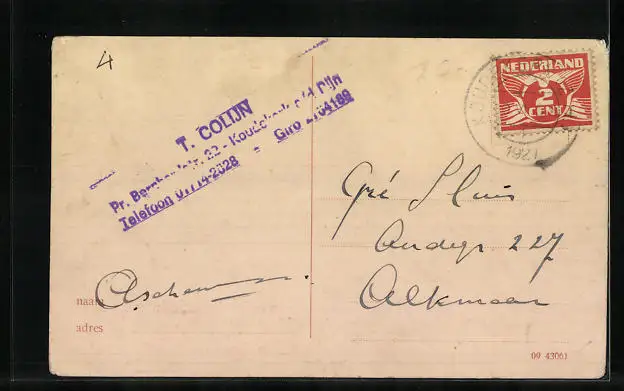 4
NEDERLAND
2
CENT
1927
T. COLIJN
Pr. Bernhardstr. 22 - Koudekerk a/d Rijn
Telefoon 01714-2028 - Giro 2104189
Gré Sluis
227
Alkmaar
naam
adres
09 43061